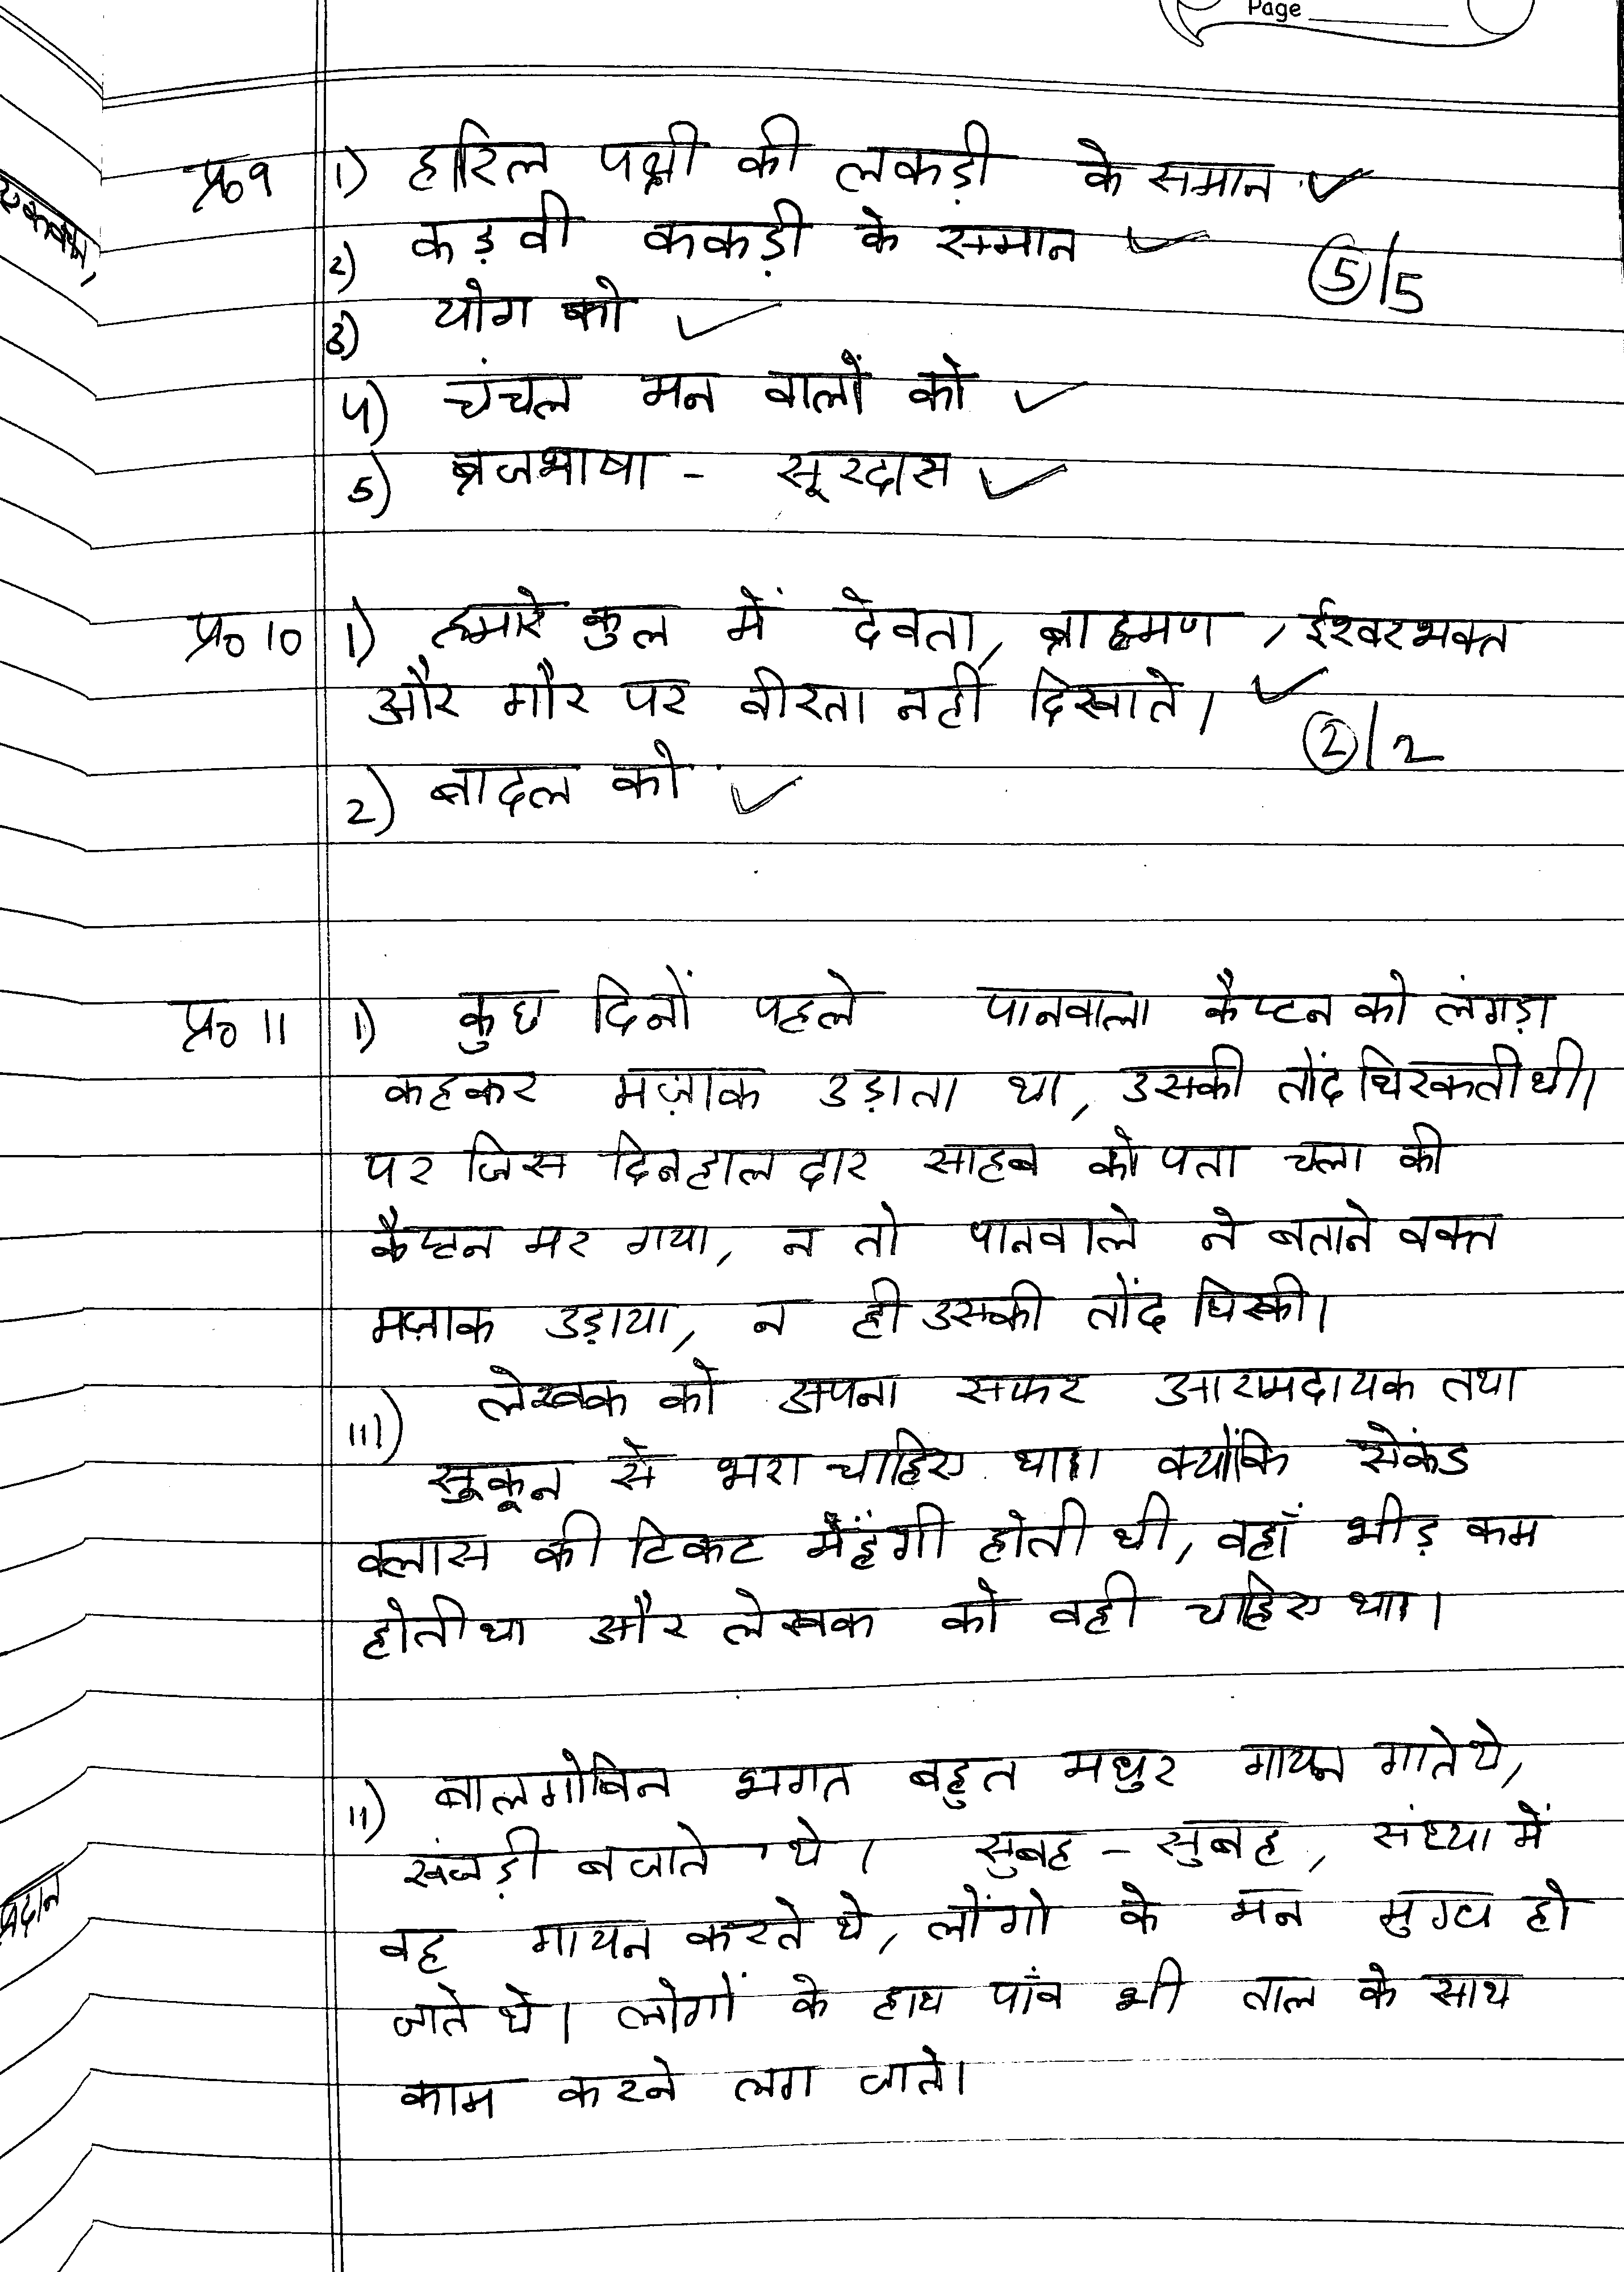 Page
प्र०9 1) हारिल पक्षी की लकड़ी के समान
2) कड़वी ककड़ी के समान
5/5
3) योग को
4) चंचल मन वालों को
5) ब्रजभाषा - सूरदास
प्र० 10 1) हमारे कुल में देवता, ब्राह्मण, ईश्वरभक्त
और गौर पर वीरता नहीं दिखाते।
2/2
2) बादल को
प्र० 11 1) कुछ दिनों पहले पानवाला कैप्टन को लंगड़ा
कहकर मज़ाक उड़ाता था, उसकी तोंद थिरकती थी।
पर जिस दिन हालदार साहब को पता चला की
कैप्टन मर गया, न तो पानवाले ने बताने वक्त
मज़ाक उड़ाया, न ही उसकी तोंद घिस्की।
III) लेखक को अपना सफर आरामदायक तथा
सुकून से भरा चाहिए था। क्योंकि सेकंड
क्लास की टिकट मेंहंगी होती थी, वहाँ भीड़ कम
होती था और लेखक को वही चाहिए था।
II) बालगोबिन भगत बहुत मधुर गायन गाते थे,
खंजड़ी बजाते थे। सुबह - सुबह, संध्या में
वह गायन करते थे, लोंगो के मन मुग्ध हो
जाते थे। लोगों के हाथ पाँव भी ताल के साथ
काम करने लग जाते।